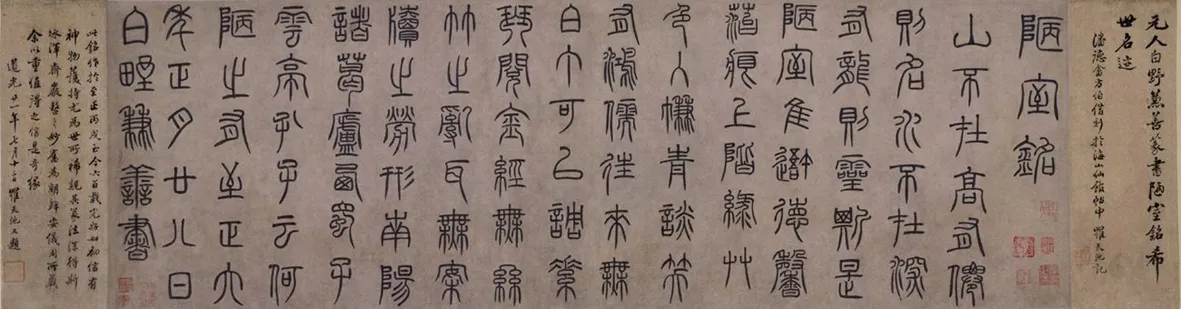 元人白野兼善篆書陋室銘希
世名迹
潘德畬方伯借刻於海山仙館帖中 羅天池記
陋室銘
山不在高有僊
則名水不在深
有龍則靈斯是
陋室隹吾德馨
苔痕上階綠艸
色入簾青談笑
有鴻儒往來無
白丁可以調素
琴閱金經無絲
竹之亂耳無案
牘之勞形南陽
諸葛廬西蜀子
雲亭孔子云何
陋之有至正六
年正月廿八日
白野兼善書
此銘作於至正丙戌至今六百載完好如初信有
神物護持尤為世所稀覯其篆法深得斯
冰渾齊嚴整之妙舊為朝鮮安儀周所藏
余以重值得之信是奇緣
道光廿一年七月十日羅天池又題